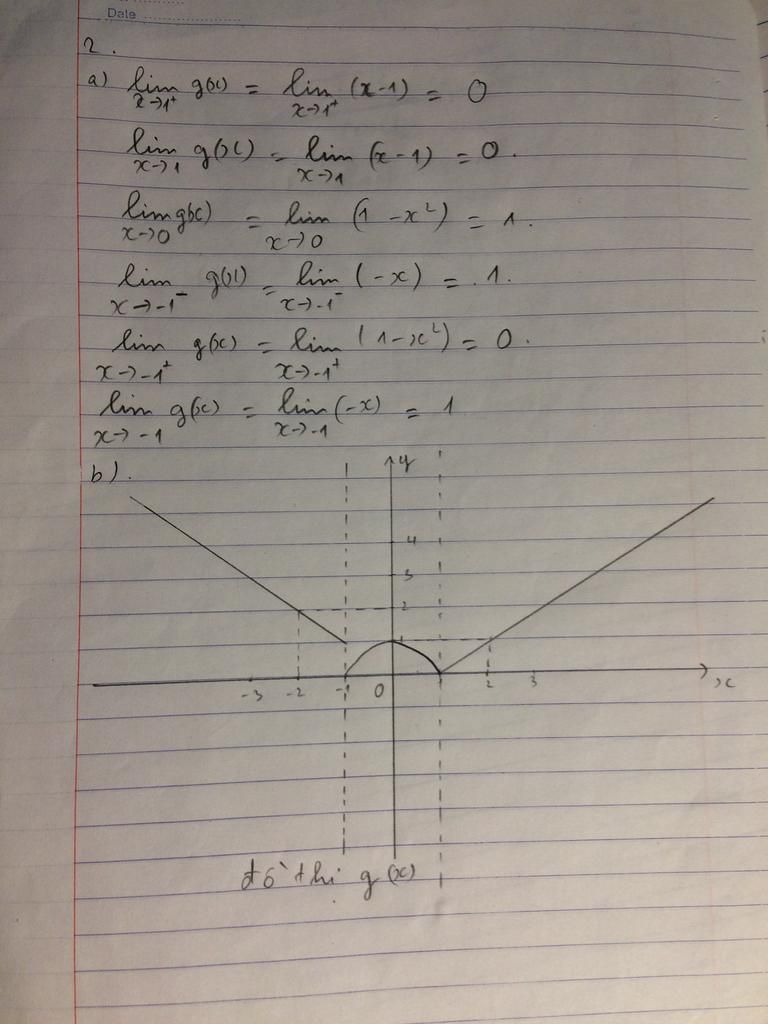 Date
2.
a) lim x→1⁺ g(x) = lim x→1⁺ (x-1) = 0
lim x→1 g(x) = lim x→1 (x-1) = 0.
lim x→0 g(x) = lim x→0 (1-x²) = 1.
lim x→-1⁻ g(x) = lim x→-1⁻ (-x) = 1.
lim x→-1⁺ g(x) = lim x→-1⁺ (1-x²) = 0.
lim x→-1 g(x) = lim x→-1 (-x) = 1
b).
y
4
3
2
1
-3 -2 -1 0 2 3 x
đồ thị g(x)